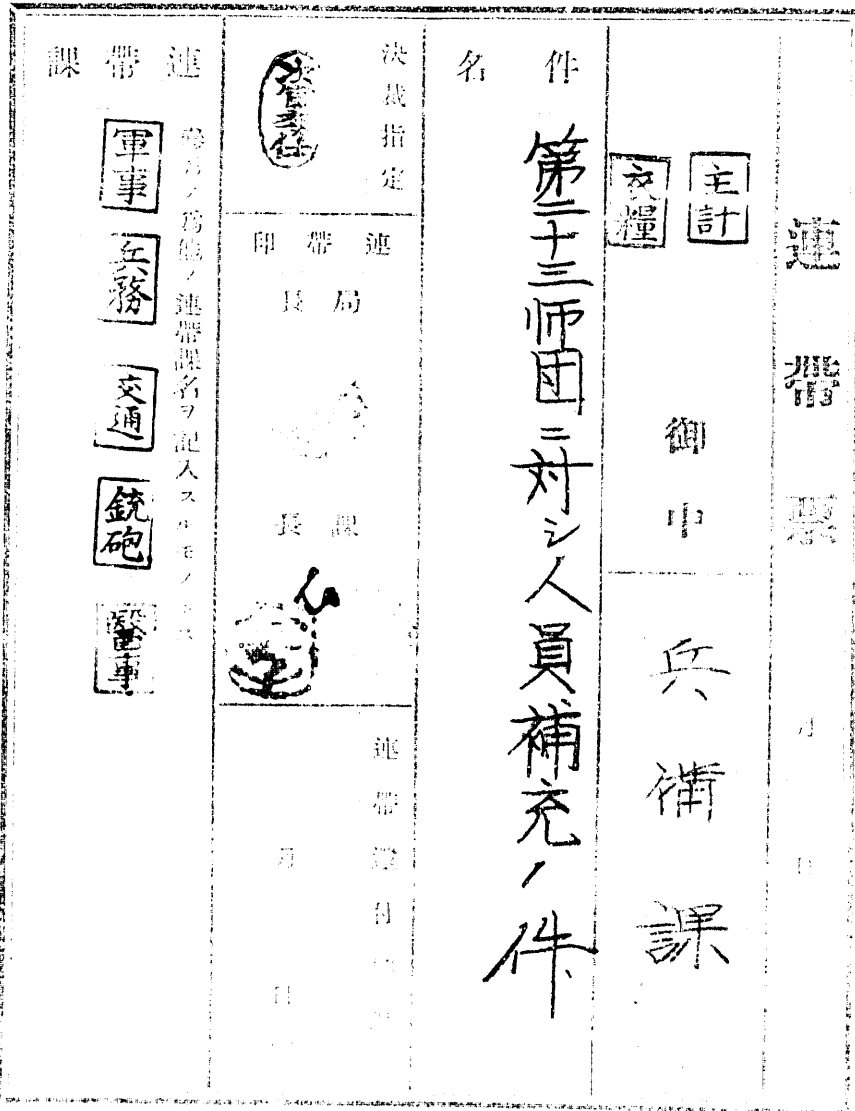 連帯票
月 日
主計
衣糧
御中
兵備課
件名
第二十三師団ニ対シ人員補充ノ件
決裁指定
次官委任
連帯印
局長
課長
連帯
月 日
連帯課
連帯課名ヲ記入スルモノトス
軍事
兵務
交通
銃砲
醫事